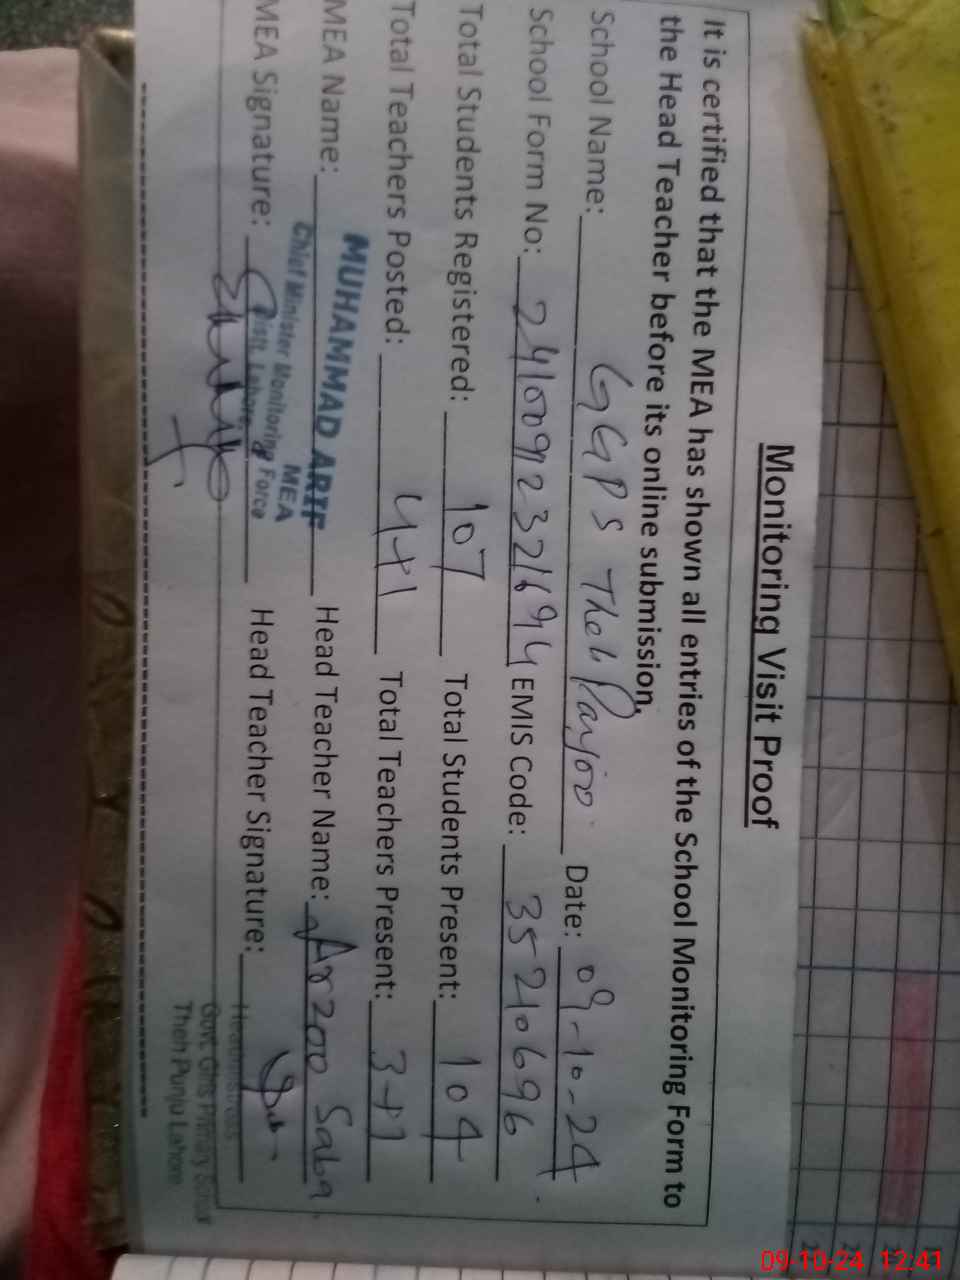 Monitoring Visit Proof
It is certified that the MEA has shown all entries of the School Monitoring Form to
the Head Teacher before its online submission.
School Name: GGPS Theh Panjoo Date: 09-10-24
School Form No: EMIS Code: 35210696
Total Students Registered: 107 Total Students Present: 104
Total Teachers Posted: 4+1 Total Teachers Present: 3+1
MEA Name: MUHAMMAD ARIF Head Teacher Name: Arzoo Saba
MEA
Chief Minister Monitoring Force
Distt. Lahore.
MEA Signature: Head Teacher Signature:
Headmistress
Govt. Girls Primary School
Theh Punju Lahore
09-10-24 12:41